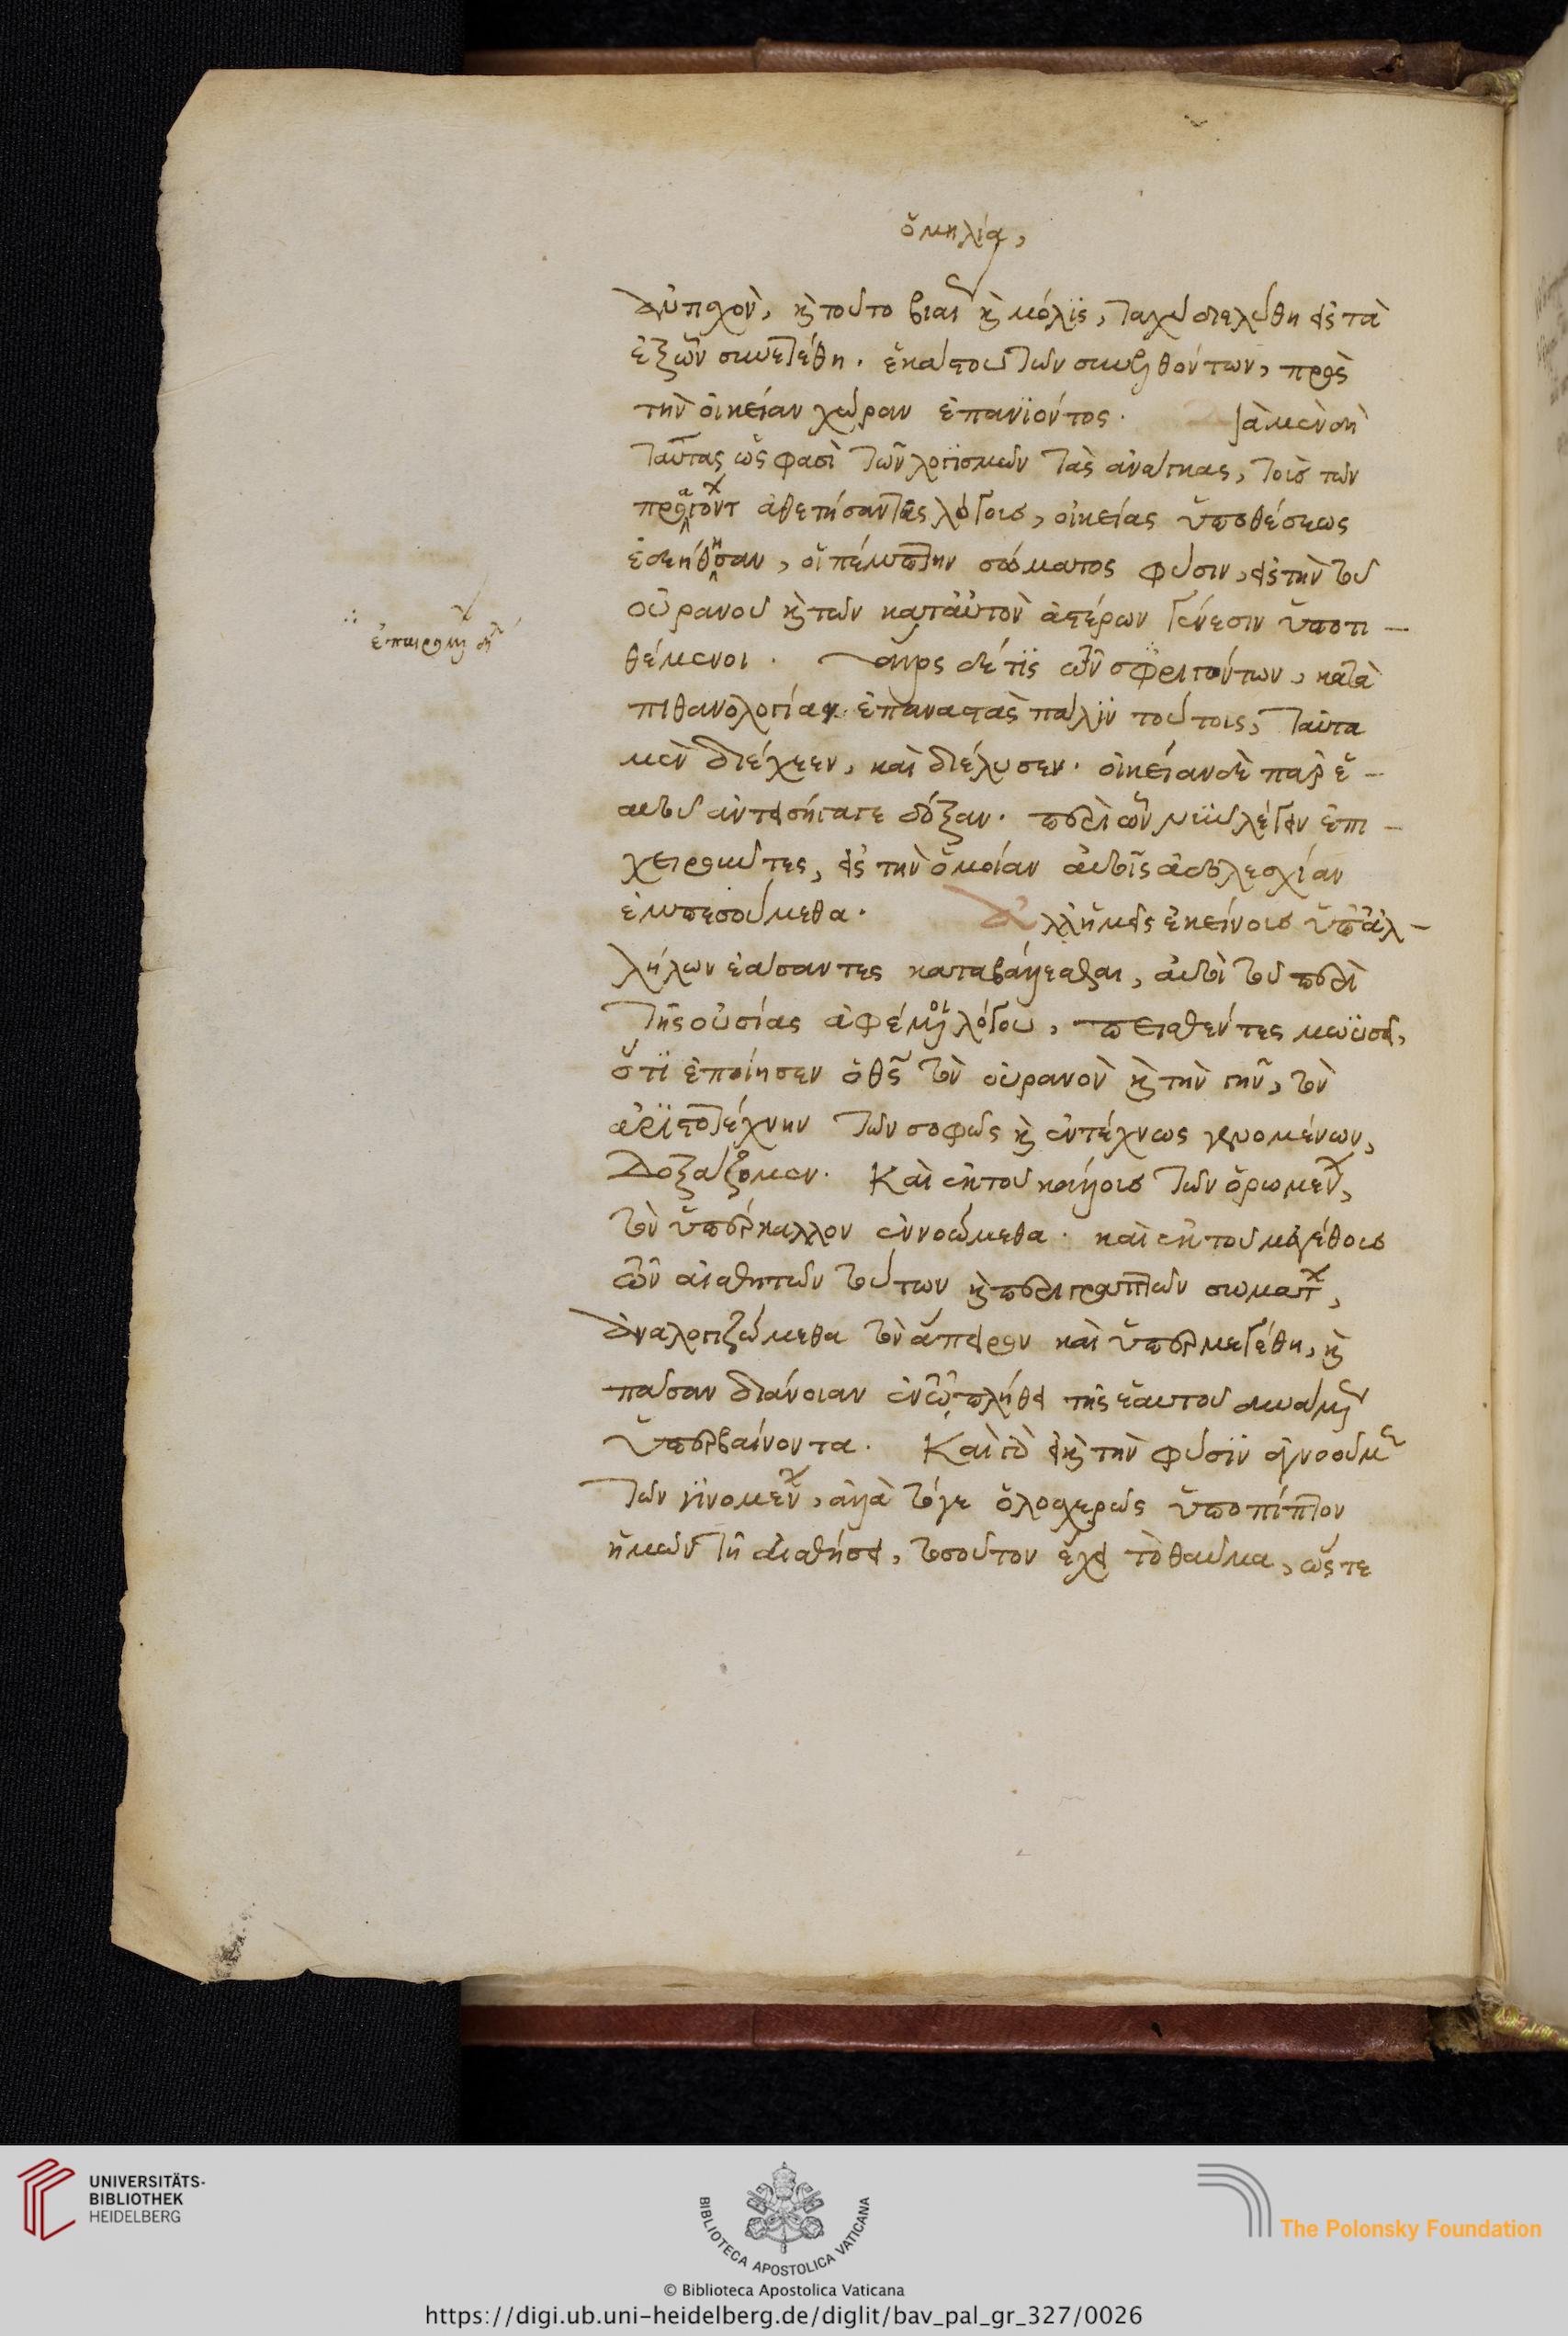 ὁμηλία,
καὶ τοῦτο βίαι καὶ μόλϊς, ταχὺ διελύθη εἰς τὰ
ἐξ ὧν συνετέθη. ἑκάστου τῶν συνελθόντων, πρὸς
τὴν οἰκείαν χώραν ἐπανϊόντος.
ταύτας ὥς φασὶ τῶν λογϊσμῶν τὰς ἀνάγκας, τοὺς τῶν
προαγόντων ἀθετήσαντες λόγους, οἰκείας ὑποθέσεως
ἐδεήθησαν, οἱ πέμπτην σώματος φύσιν, εἰς τὴν τοῦ
οὐρανοῦ καὶ τῶν κατ' αὐτὸν ἀστέρων γένεσιν ὑποτι-
θέμενοι. ἄλλος δέ τϊς τῶν σφριγώντων, κατὰ
πιθανολογίαν ἐπαναστὰς πάλϊν τούτοις, ταῦτα
μὲν διέχεεν, καὶ διέλυσεν. οἰκείαν δὲ παρ' ἑ-
αυτοῦ ἀντεισήγαγε δόξαν. περὶ ὧν νῦν λέγειν ἐπι-
χειροῦντες, εἰς τὴν ὁμοίαν αὐτοῖς ἀδολεσχίαν
ἐμπεσούμεθα. ἀλλ' ἡμεῖς ἐκείνους ὑπ' ἀλ-
λήλων ἐάσαντες καταβάλλεσθαι, αὐτοὶ τοῦ περὶ
τῆς οὐσίας ἀφέμενοι λόγου, πεισθέντες μωϋσεῖ,
ὅτϊ ἐποίησεν ὁ θς τὸν οὐρανὸν καὶ τὴν γῆν, τὸν
ἀρϊστοτέχνην τῶν σοφῶς καὶ ἐντέχνως γενομένων,
δοξάζομεν. Καὶ ἐκ τοῦ κάλλους τῶν ὁρωμένων,
τὸν ὑπέρκαλλον ἐννοώμεθα. καὶ ἐκ τοῦ μεγέθους
τῶν αἰσθητῶν τούτων καὶ περιγραπτῶν σωμάτων,
ἀναλογιζώμεθα τὸν ἄπειρον καὶ ὑπερμεγέθη, καὶ
πᾶσαν διάνοιαν ἐν τῷ πλήθει τῆς ἑαυτοῦ δυνάμεως
ὑπερβαίνοντα. Καὶ γὰρ εἰ καὶ τὴν φύσϊν ἀγνοοῦμεν
τῶν γϊνομένων, ἀλλὰ τόγε ὁλοσχερῶς ὑποπίπτον
ἡμῶν τῆ αἰσθήσει, τοσοῦτον ἔχει τὸ θαῦμα, ὥστε
UNIVERSITÄTS-
BIBLIOTHEK
HEIDELBERG
BIBLIOTECA APOSTOLICA VATICANA
The Polonsky Foundation
© Biblioteca Apostolica Vaticana
https://digi.ub.uni-heidelberg.de/diglit/bav_pal_gr_327/0026